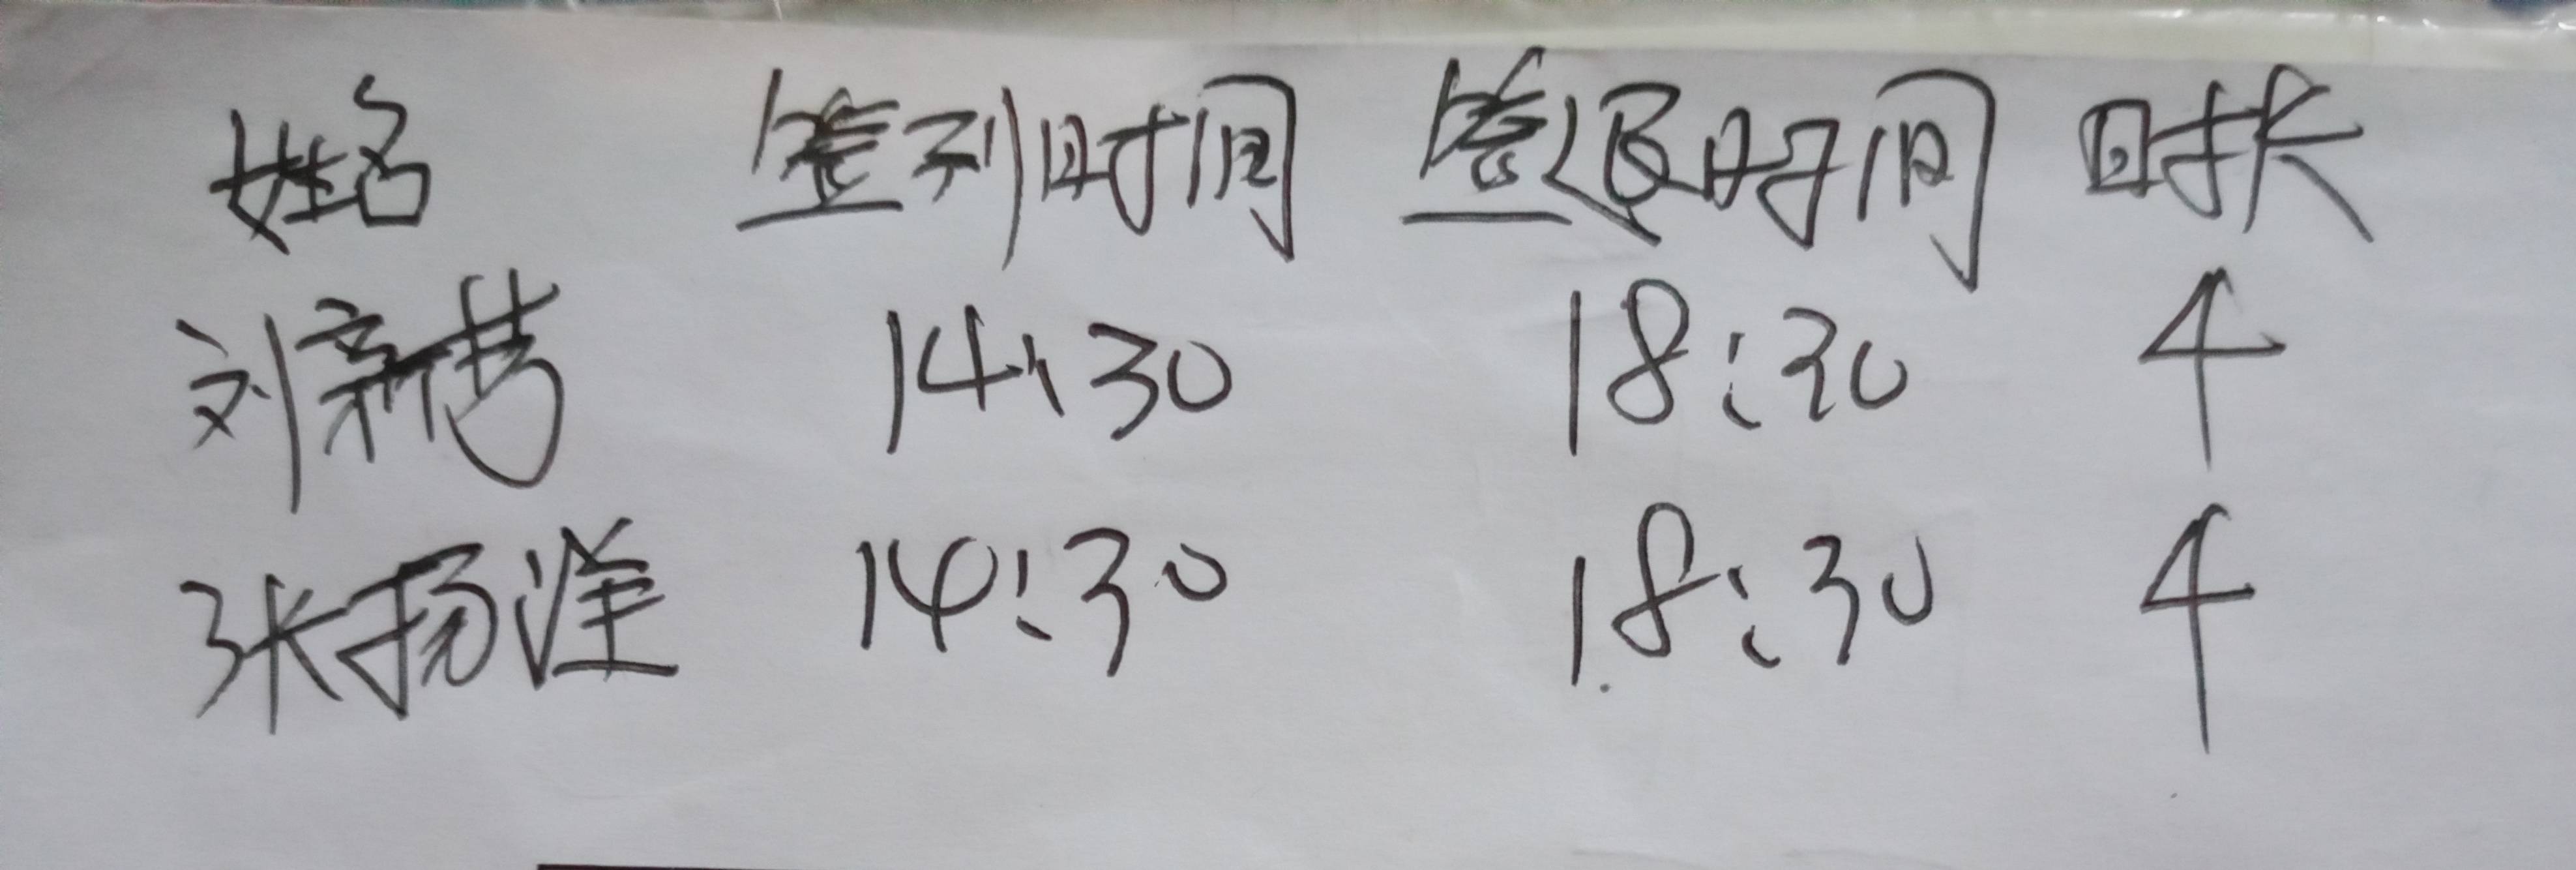 姓名 签到时间 签退时间 时长
刘新 14:30 18:30 4
张扬淦 14:30 18:30 4